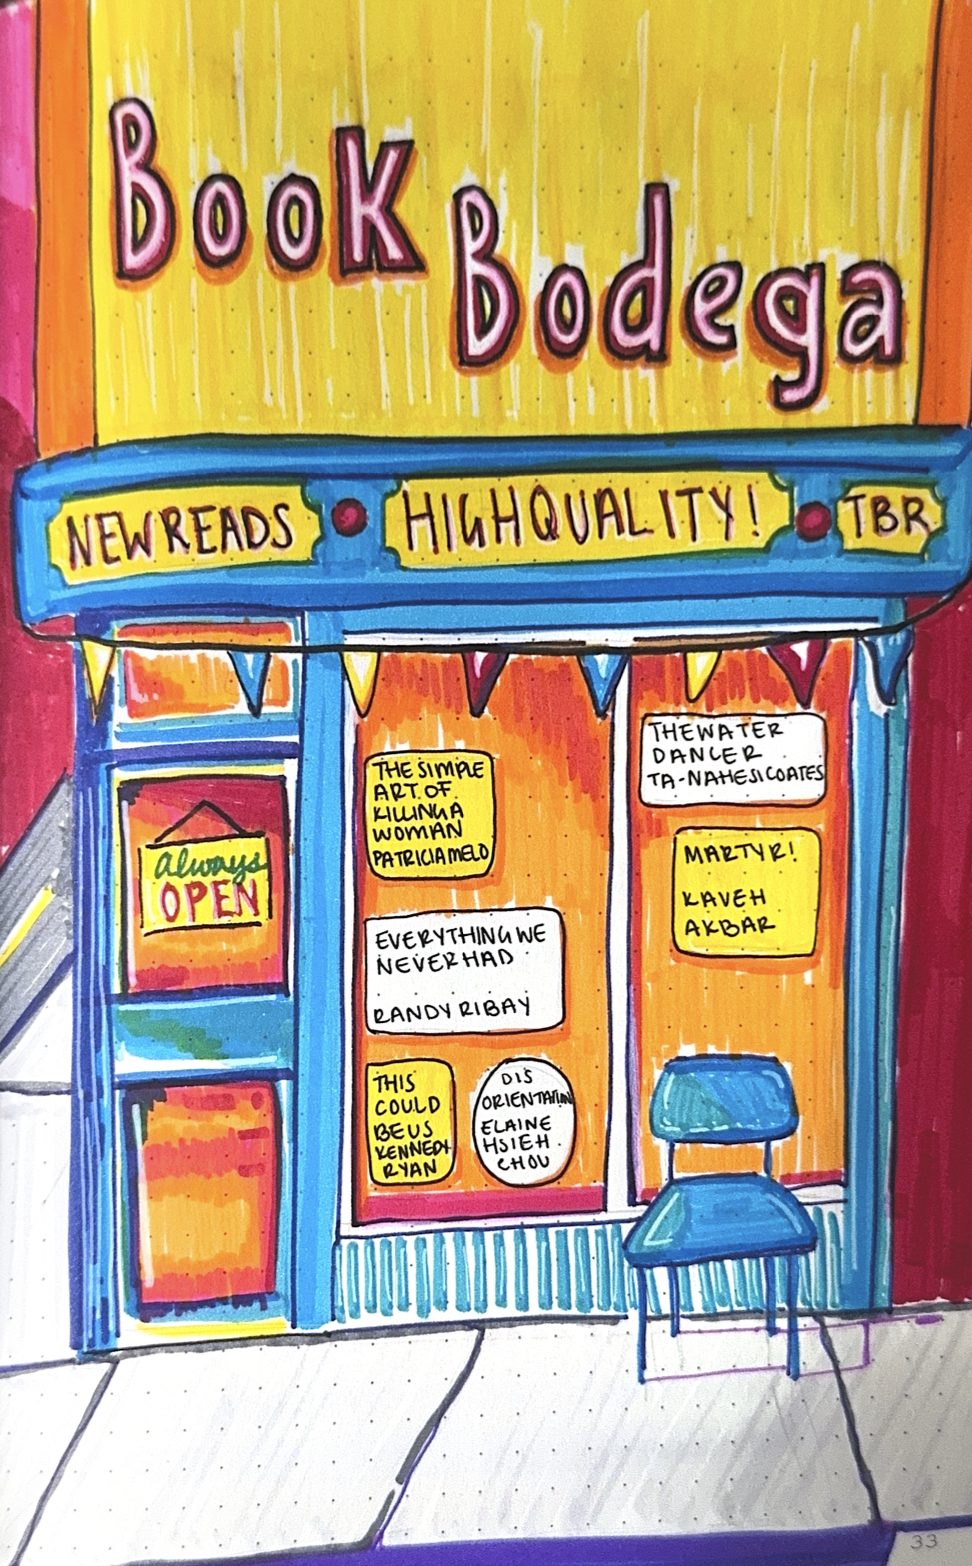 Book
Bodega
NEW READS
HIGH QUALITY!
TBR
always
OPEN
THE SIMPLE
ART OF
KILLING A
WOMAN
PATRICIA MELO
EVERYTHING WE
NEVER HAD
RANDY RIBAY
THIS
COULD
BE US
KENNEDY
RYAN
DIS
ORIENTATION
ELAINE
HSIEH
CHOU
THE WATER
DANCER
TA-NAHESI COATES
MARTYR!
KAVEH
AKBAR
33